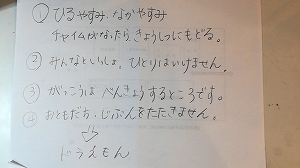 ① ひるやすみ なかやすみ
チャイムがなったら きょうしつにもどる。
② みんなといっしょ。ひとりはいけません。
③ がっこうは べんきょうするところです。
④ おともだち・じぶんをたたきません。
ドラえもん